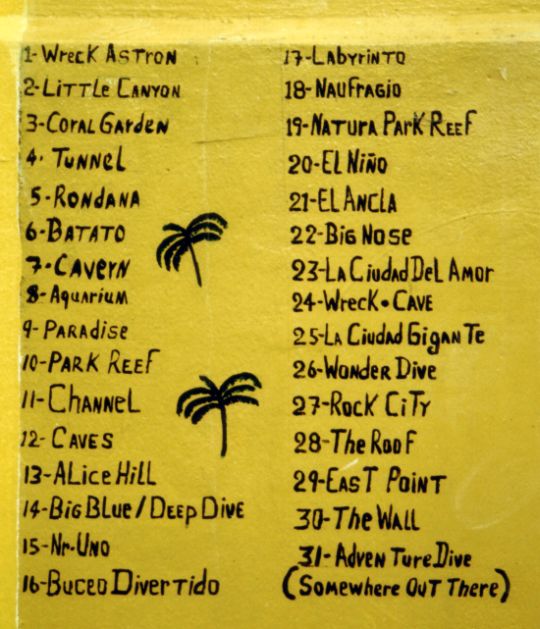 1-Wreck Astron
2-Little Canyon
3-Coral Garden
4. Tunnel
5-Rondana
6-Batato
7-Cavern
8-Aquarium
9-Paradise
10-Park Reef
11-Channel
12-Caves
13-Alice Hill
14-Big Blue/Deep Dive
15-Nr.Uno
16-Buceo Divertido
17-Labyrinto
18-Naufragio
19-Natura Park Reef
20-El Niño
21-El Ancla
22-Big Nose
23-La Ciudad Del Amor
24-Wreck•Cave
25-La Ciudad Gigante
26-Wonder Dive
27-Rock City
28-The Roof
29-East Point
30-The Wall
31-Adventure Dive
(Somewhere Out There)